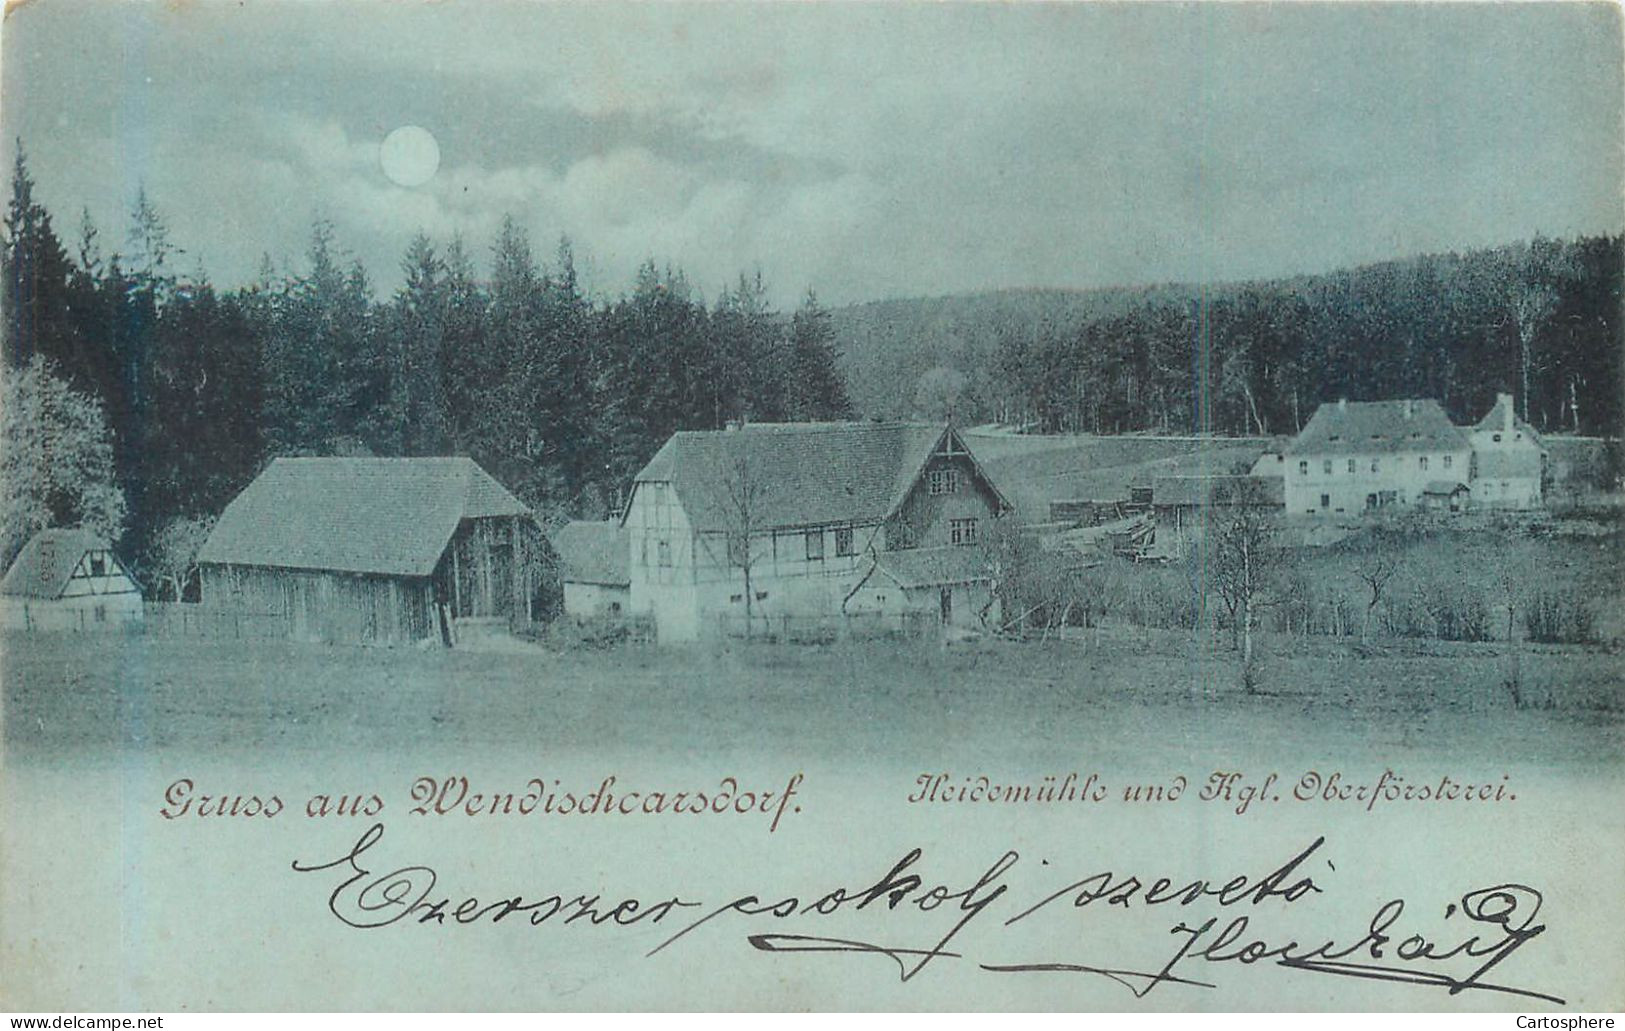 Gruss aus Wendischcarsdorf. Heidemühle und Kgl. Oberförsterei.
Ezerszer csokolj szerető
Ilonkád
www.delcampe.net
Cartosphere